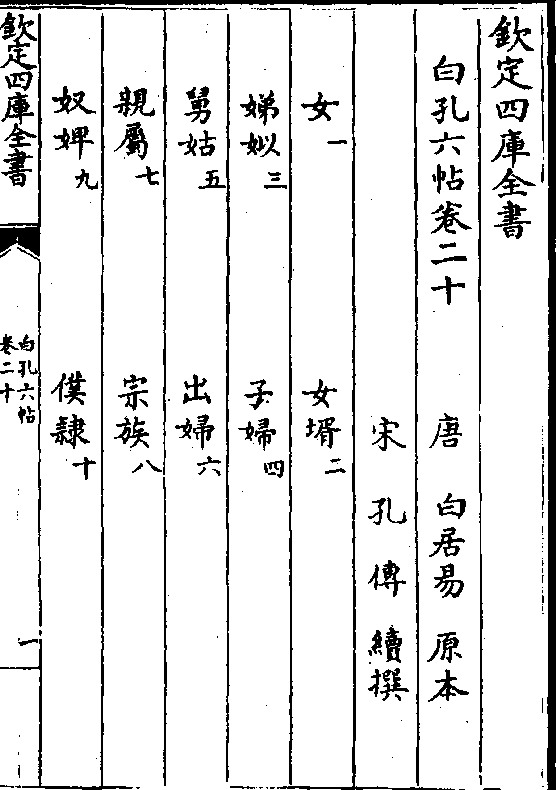 欽定四庫全書
白孔六帖卷二十
唐 白居易 原本
宋 孔傳 續撰
女一 女壻二
娣姒三 子婦四
舅姑五 出婦六
親屬七 宗族八
奴婢九 僕隸十
欽定四庫全書
白孔六帖
卷二十
一